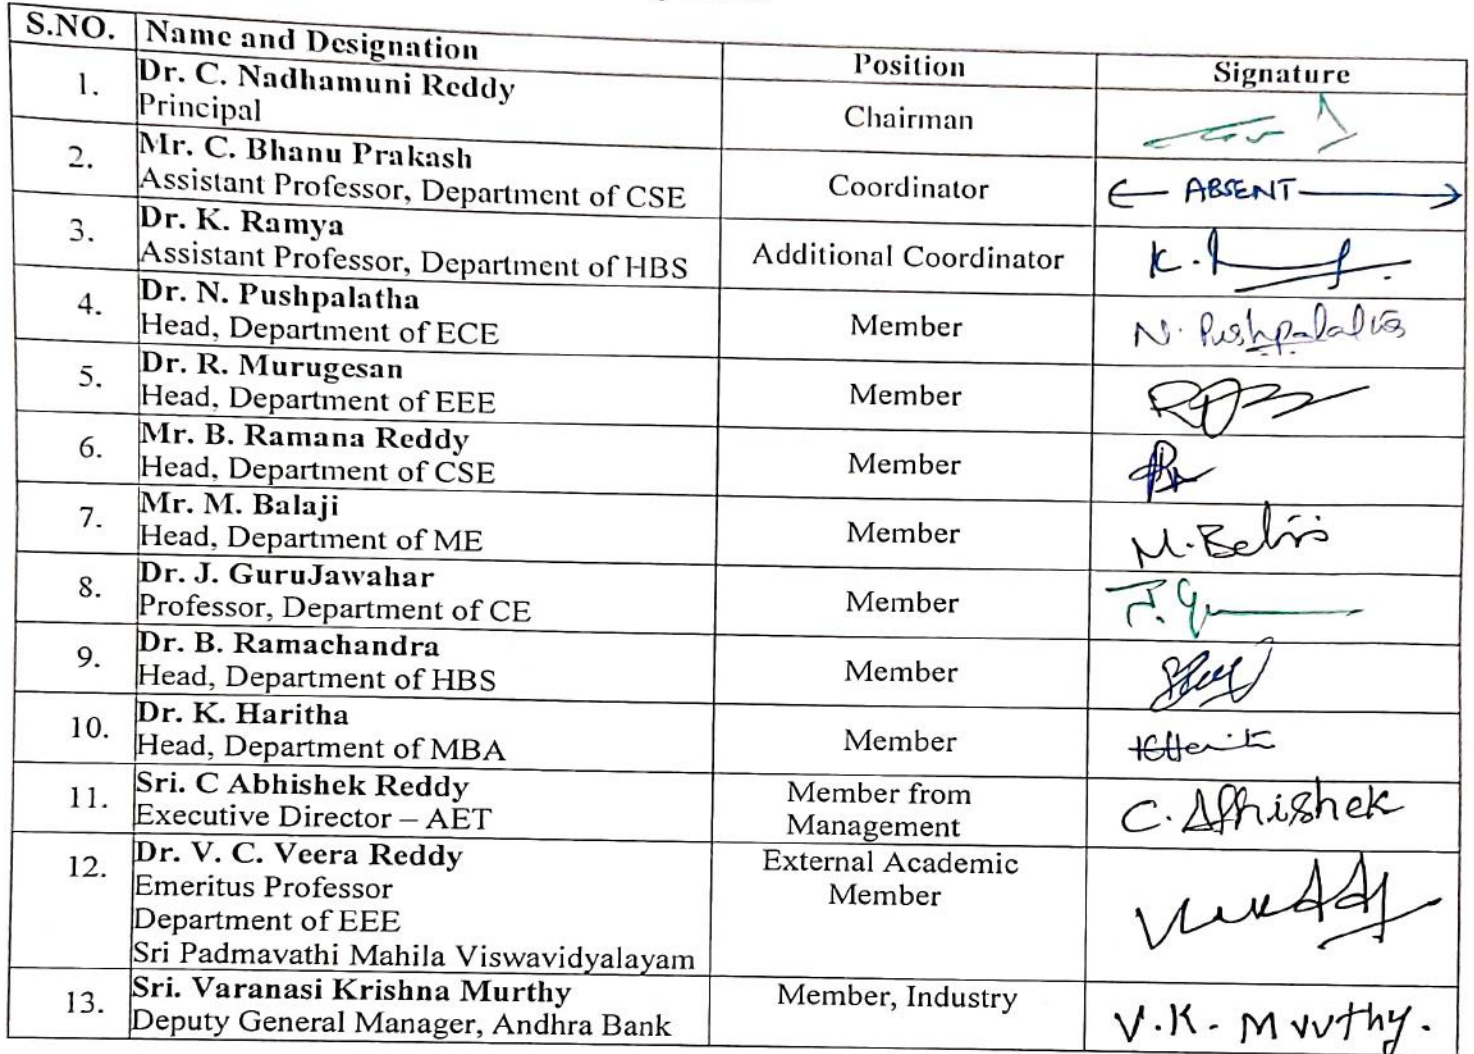 S.NO. Name and Designation Position Signature
1. Dr. C. Nadhamuni Reddy
Principal Chairman
2. Mr. C. Bhanu Prakash
Assistant Professor, Department of CSE Coordinator ABSENT
3. Dr. K. Ramya
Assistant Professor, Department of HBS Additional Coordinator K.
4. Dr. N. Pushpalatha
Head, Department of ECE Member N. Pushpalatha
5. Dr. R. Murugesan
Head, Department of EEE Member
6. Mr. B. Ramana Reddy
Head, Department of CSE Member
7. Mr. M. Balaji
Head, Department of ME Member M.
8. Dr. J. GuruJawahar
Professor, Department of CE Member J.
9. Dr. B. Ramachandra
Head, Department of HBS Member
10. Dr. K. Haritha
Head, Department of MBA Member
11. Sri. C Abhishek Reddy Member from
Executive Director – AET Management C. Abhishek
12. Dr. V. C. Veera Reddy External Academic
Emeritus Professor Member
Department of EEE
Sri Padmavathi Mahila Viswavidyalayam
13. Sri. Varanasi Krishna Murthy Member, Industry
Deputy General Manager, Andhra Bank V.K. Murthy.